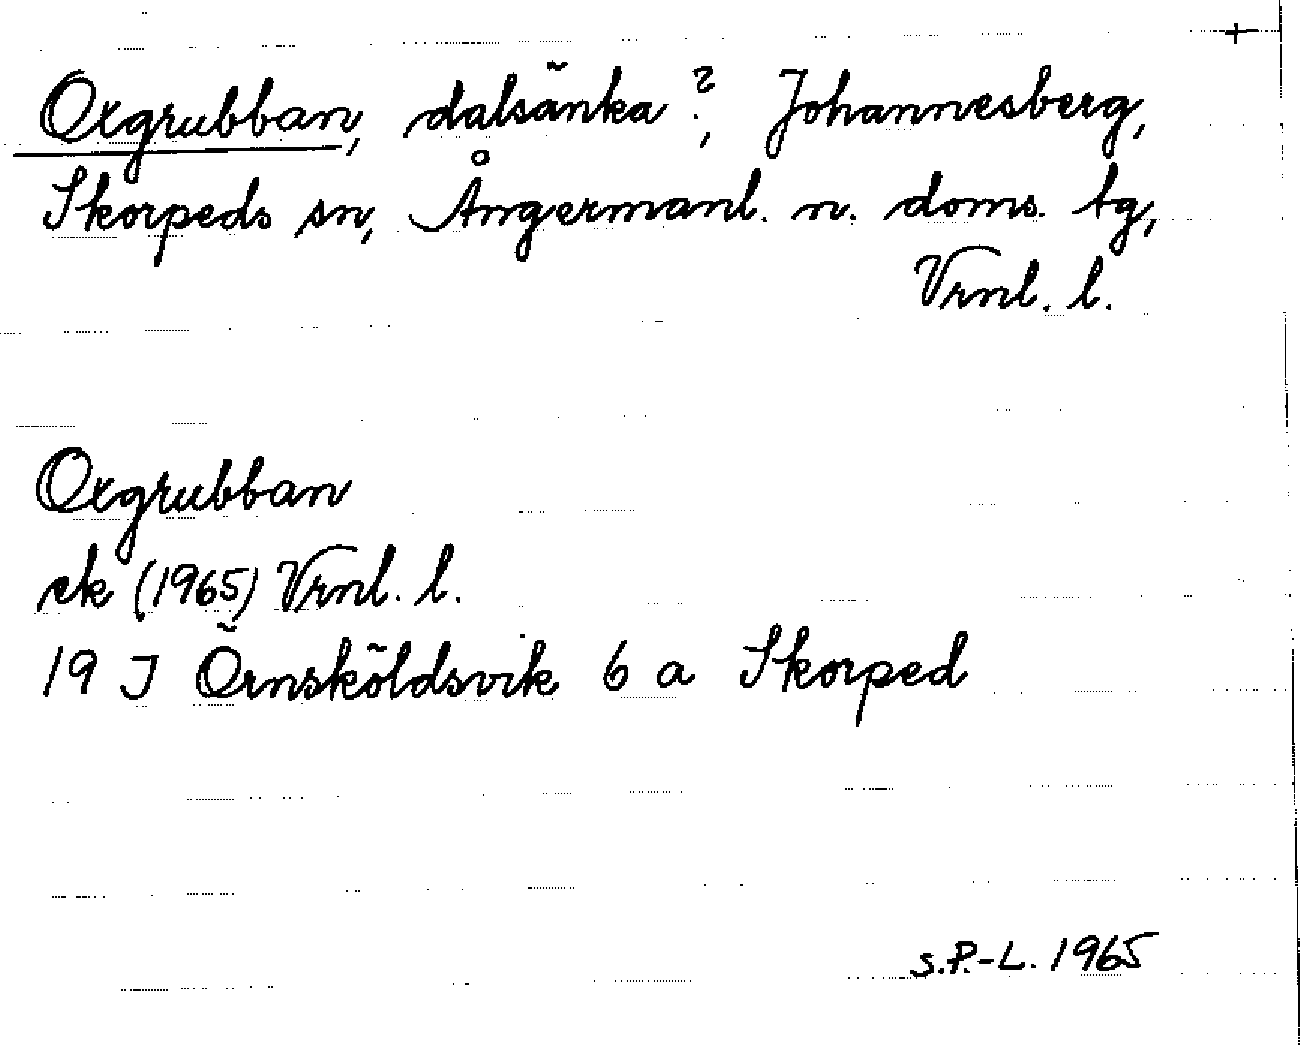 Oxgrubban, dalsänka?, Johannesberg,
Skorpeds sn, Ångermanl. n. doms. tg,
Vrnl. l.
Oxgrubban
ek (1965) Vrnl. l.
19 J Örnsköldsvik 6 a Skorped
S.P.-L. 1965